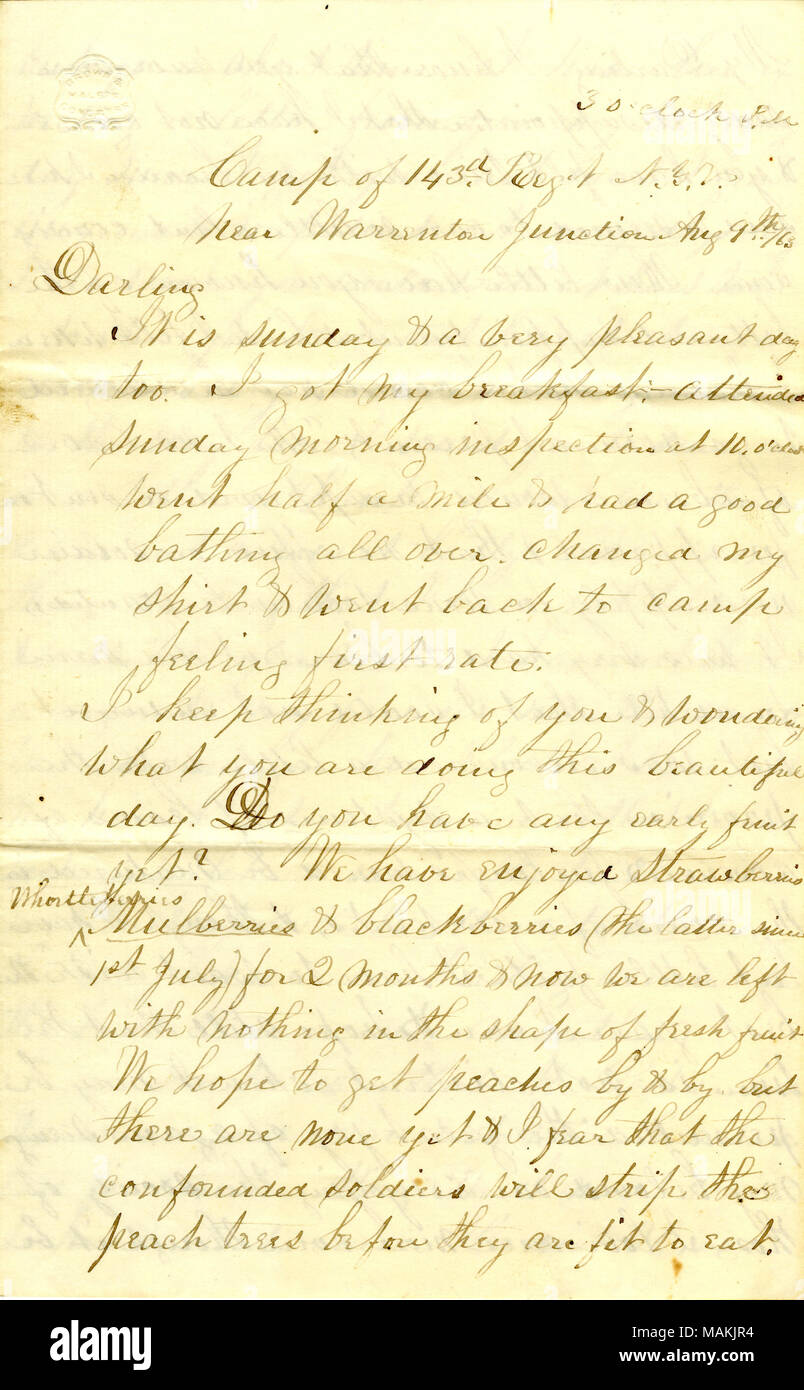 3 o'clock P.M.
Camp of 143d Regt N.Y.V.
near Warrenton Junction Aug 9th/63
Darling
It is sunday & a very pleasant day
too. I got my breakfast:– attended
sunday morning inspection at 10. o'clock
went half a mile & had a good
bathing all over. changed my
shirt & went back to camp
feeling first rate.
I keep thinking of you & wondering
what you are doing this beautiful
day. Do you have any early fruit
yet? We have enjoyed strawberries
Whortleberries
^ Mulberries & blackberries (the latter since
1st July) for 2 months & now we are left
with nothing in the shape of fresh fruit
We hope to get peaches by & by. but
there are none yet & I fear that the
confounded soldiers will strip the
peach trees before they are fit to eat.
alamy
Image ID: MAKJR4
www.alamy.com